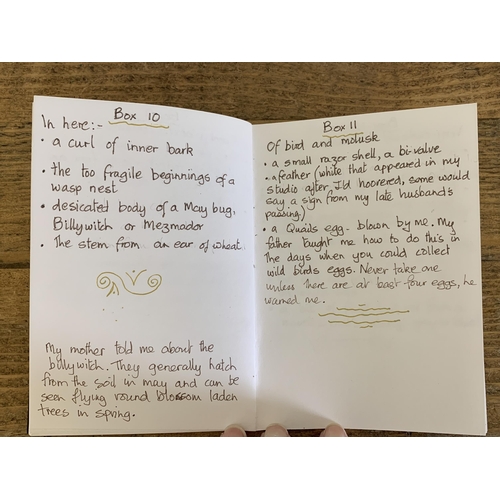 Box 10
In here:-
• a curl of inner bark
• the too fragile beginnings of a
wasp nest
• desicated body of a May bug,
Billywitch or Mezmador
• The stem from an ear of wheat.
My mother told me about the
billywitch. They generally hatch
from the soil in may and can be
seen flying round blossom laden
trees in spring.
Box 11
Of bird and molusk
• a small razor shell, a bi-valve
• a feather (white that appeared in my
studio after I'd hoovered, some would
say a sign from my late husband's
passing.)
• a Quails egg - blown by me. My
father taught me how to do this in
the days when you could collect
wild birds eggs. Never take one
unless there are at least four eggs, he
warned me.